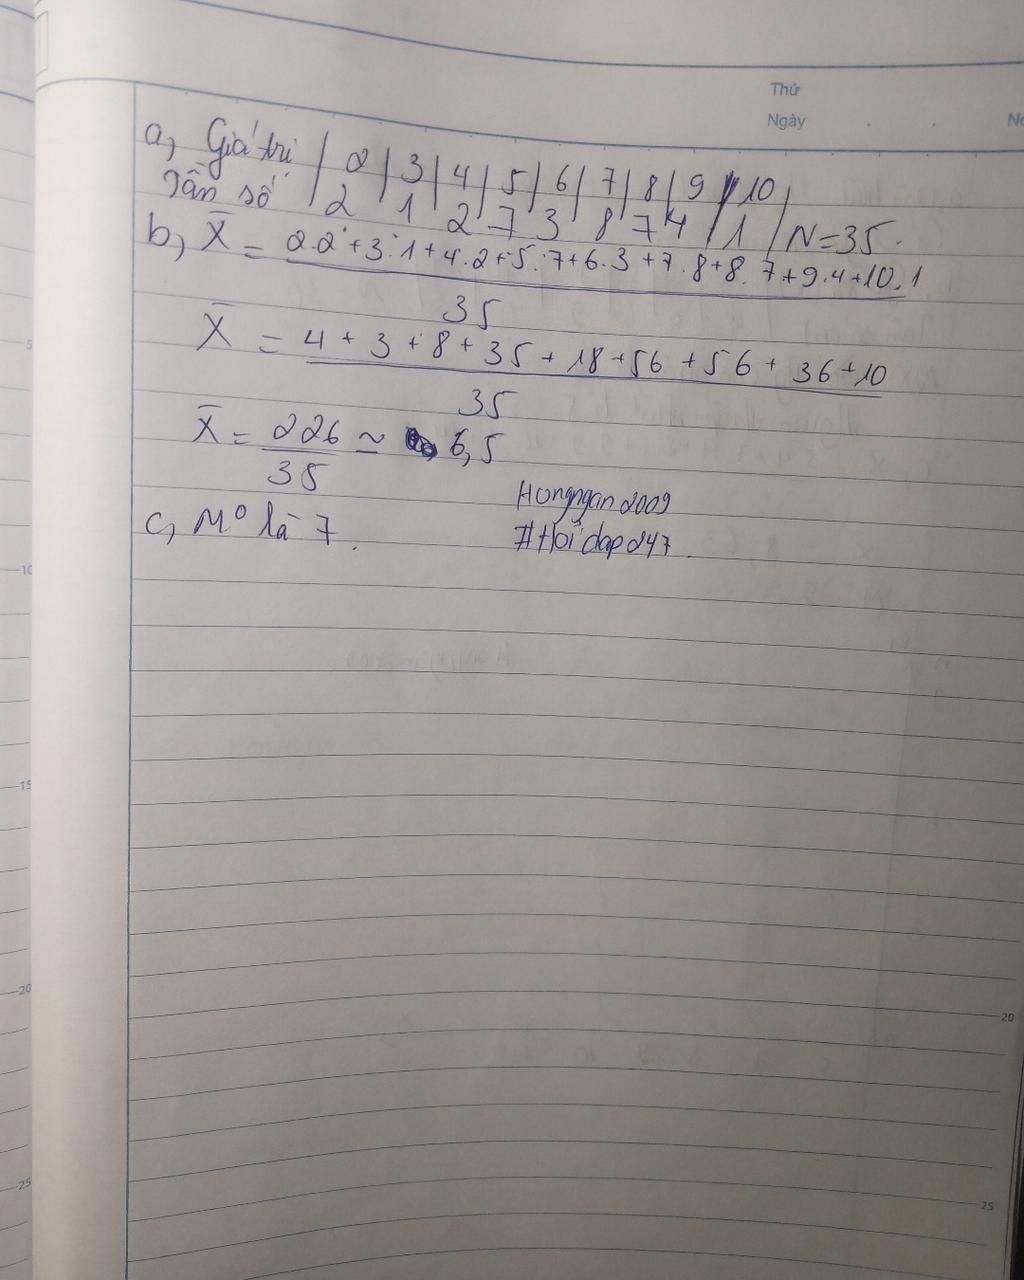 Thứ
Ngày
a, Giá trị | 2 | 3 | 4 | 5 | 6 | 7 | 8 | 9 | 10 |
Tần số | 2 | 1 | 2 | 7 | 3 | 8 | 7 | 4 | 1 | N=35.
b, X̄ = 2.2+3.1+4.2+5.7+6.3+7.8+8.7+9.4+10.1
35
X̄ = 4+3+8+35+18+56+56+36+10
35
X̄ = 226 ≃ 6,5
35
c, M⁰ là 7.
Hongngan2009
#Hoidap247.
5
10
15
20
25
20
25